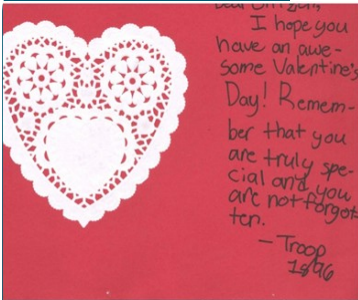 Dear Citizen,
I hope you
have an awe-
some Valentine's
Day! Remem-
ber that you
are truly spe-
cial and you
are not forgot-
ten.
- Troop
1896